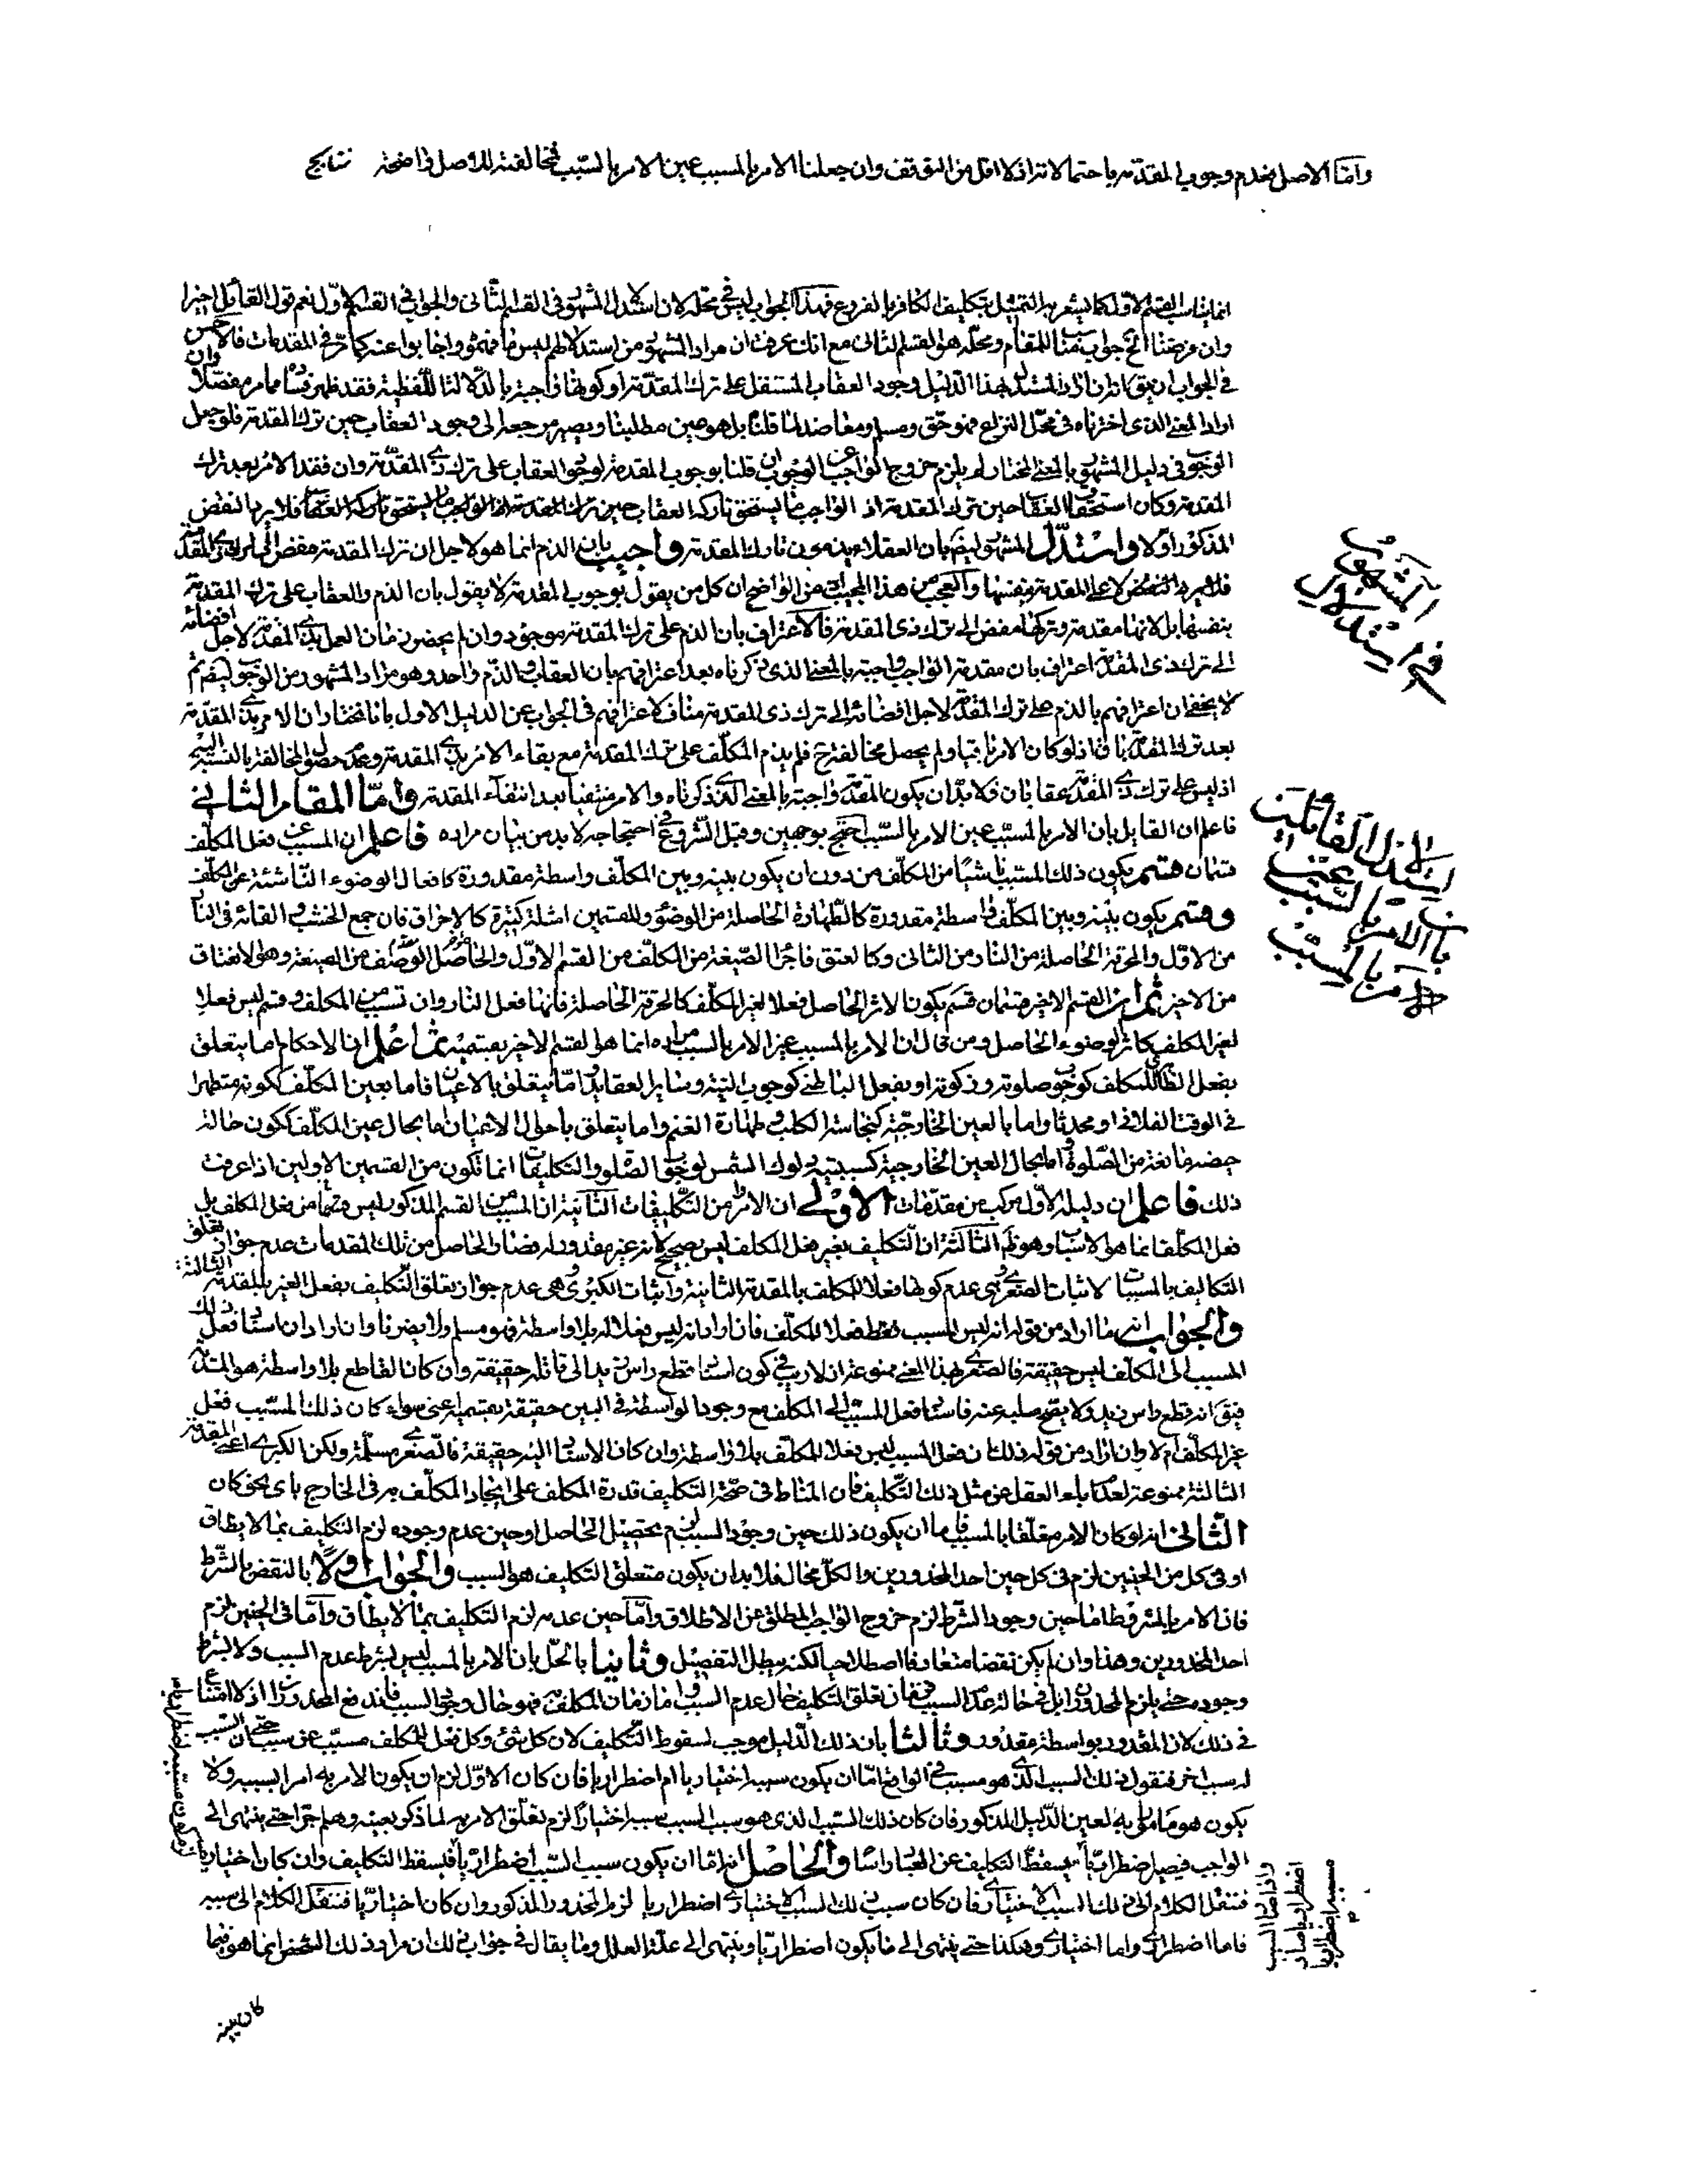 واما الاصل فعدم وجوب المقدمة باحتمالاته اذ لا اقل من التوقف وان جعلنا الامر بالمسبب عين الامر بالسبب فمخالفته للاصل واضحة نتايج
انما يناسب القسم الاول كما يشعر به التمثيل بتكليف الكافر بالفروع فهذا الجواب ليس في محله لان استدلال المشهور في القسم الثاني والجواب في القسم الاول نعم قول القائل اخيرا
وان فرضنا الخ جواب مناسب للمقام ومحله هو القسم الثاني مع انك عرفت ان مراد المشهور من استدلالهم ليس ما فهموه واجابوا عنه كما مر في المقدمات فالاحسن
في الجواب ان يقال انه ان اراد المستدل بهذا الدليل وجود العقاب المستقل على ترك المقدمة او كونها واجبة بالدلالة اللفظية فقد ظهر فساده مما مر مفصلا وان
اراد المعنى الذي اخترناه في محل النزاع فهو حق ومسلم ومعاضد لما قلنا بل هو عين مطلبنا ويصير مرجعه الى وجود العقاب حين ترك المقدمة فلو جعل
الوجوب في دليل المشهور بالمعنى المختار لم يلزم خروج الواجب عن الوجوب ان قلنا بوجوب المقدمة لوجود العقاب على ترك ذي المقدمة وان فقد الامر بعد ترك
المقدمة وكان استحقاق العقاب حين ترك المقدمة اذ الواجب ما يستحق تاركه العقاب فلا يرد النقض
المذكور اولا واستدل المشهور ايضا بان العقلاء يذمون تارك المقدمة واجيب بان الذم انما هو لاجل ان ترك المقدمة مفض الى ترك ذي المقدمة
بنفسها والعجب من هذا المجيب اذ من الواضح ان كل من يقول بوجوب المقدمة لا يقول بان الذم والعقاب على ترك المقدمة
بنفسها بل لانها مقدمة وتركها مفض الى ترك ذي المقدمة فالاعتراف بان الذم على ترك المقدمة موجود وان لم يحضر زمان العمل بذي المقدمة لاجل افضائه
الى ترك ذي المقدمة اعتراف بان مقدمة الواجب واجبة بالمعنى الذي ذكرناه بعد اعترافهم بان العقاب والذم واحد وهو مراد المشهور من الوجوب ايضا ثم
لا يخفى ان اعترافهم بالذم على ترك المقدمة لاجل افضائه الى ترك ذي المقدمة مناف لاعترافهم في الجواب عن الدليل الاول بانا نختار ان الامر بذي المقدمة
بعد ترك المقدمة باق اذ لو كان الامر باقيا ولم يحصل مخالفته ح فلم يذم المكلف على ترك المقدمة مع بقاء الامر بذي المقدمة وعدم حصول المخالفة بالنسبة اليه
اذ ليس على ترك ذي المقدمة عقابان فلا بد ان يكون المقدمة واجبة بالمعنى الذي ذكرناه والامر منتفيا بعد انتفاء المقدمة واما المقام الثاني
فاعلم ان القايل بان الامر بالمسبب عين الامر بالسبب احتج بوجهين وقبل الشروع في احتجاجه لا بد من بيان مراده فاعلم ان المسبب عن فعل المكلف
قسمان قسم يكون ذلك المسبب ناشئا من المكلف من دون ان يكون بينه وبين المكلف واسطة مقدورة كافعال الوضوء الناشئة عن المكلف
وقسم يكون بينه وبين المكلف واسطة مقدورة كالطهارة الحاصلة من الوضوء وللقسمين امثلة كثيرة كالاحراق فان جمع الخشب والقائه في النار
من الاول والحرقة الحاصلة من النار من الثاني وكالعتق فاجراء الصيغة من المكلف من القسم الاول والحاصل من الصيغة وهو الانعتاق
من الاخير ثم ان القسم الاخير قسمان قسم يكون الاثر الحاصل فعلا لغير المكلف كالحرقة الحاصلة فانها فعل النار وان تسبب من المكلف وقسم ليس فعلا
لغير المكلف كاثر الوضوء الحاصل ومن قال ان الامر بالمسبب عين الامر بالسبب مراده انما هو القسم الاخير بقسميه ثم اعلم ان الاحكام اما يتعلق
بفعل المكلف كوجوب صلوته وزكوته او بفعل الباطني كوجوب النية وساير العقايد واما يتعلق بالاعيان فاما بعين المكلف ككونه متطهرا
في الوقت الفلاني او محدثا واما بالعين الخارجية كنجاسة الكلب وطهارة الغنم واما يتعلق باحوال الاعيان اما بحال عين المكلف ككون حالة
حيضه مانعة من الصلوة او بحال العين الخارجية كسببية دلوك الشمس لوجوب الصلوة والتكليفات انما تكون من القسمين الاولين اذا عرفت
ذلك فاعلم ان دليله الاول مركب من مقدمات الاولى ان الامر من التكليفات الثانية ان المسبب من القسم المذكور ليس قسما من فعل المكلف بل
فعل المكلف انما هو الاسباب وهو ظاهر الثالثة ان التكليف بغير فعل المكلف ليس بصحيح لانه غير مقدور له فصار الحاصل من تلك المقدمات عدم جواز تعلق
التكاليف بالمسببات لاثبات الصغرى وهي عدم كونها فعلا للمكلف بالمقدمة الثانية واثبات الكبرى وهي عدم جواز تعلق التكليف بفعل الغير بالمقدمة الثالثة
والجواب انه ما اراد من قوله انه ليس المسبب فعلا للمكلف فان اراد انه ليس فعلا له بلا واسطة فهو مسلم ولا يضرنا وان اراد ان اسناد فعل ذلك
المسبب الى المكلف ليس حقيقة فالصغرى بهذا المعنى ممنوعة اذ لا ريب في كون اسناد قطع راس زيد الى قاتله حقيقة وان كان القاطع بلا واسطة هو السيف
فيق انه قطع راس زيد ولا يصح سلبه عنه فاسناد فعل المسبب الى المكلف مع وجود الواسطة في البين حقيقة بقسميه اعني سواء كان ذلك المسبب فعل
غير المكلف ام لا وان اراد من قوله ذلك ان فعل المسبب ليس فعلا للمكلف بلا واسطة وان كان الاسناد اليه حقيقة فالصغرى مسلمة ولكن الكبرى اعني المقدمة
الثالثة ممنوعة لعدم اباء العقل عن مثل ذلك التكليف فان المناط في صحة التكليف قدرة المكلف على ايجاد المكلف به في الخارج باي نحو كان
الثاني انه لو كان الامر متعلقا بالمسبب فاما ان يكون ذلك حين وجود السبب لزم تحصيل الحاصل او حين عدم وجوده لزم التكليف بما لا يطاق
او في كل من الحينين لزم في كل حين احد المحذورين والكل محال فلا بد ان يكون متعلق التكليف هو السبب والجواب اولا بالنقض بالشرط
فان الامر بالمشروط اما حين وجود الشرط لزم خروج الواجب المطلق عن الاطلاق واما حين عدمه لزم التكليف بما لا يطاق واما في الحينين لزم
احد المحذورين وهذا وان لم يكن نقضا متعارفا اصطلاحيا لكنه يبطل التفصيل وثانيا بالحل بان الامر بالمسبب ليس بشرط عدم السبب ولا بشرط
وجوده حتى يلزم المحذوران بل في حالة عدم السبب فزمان تعلق التكليف حال عدم السبب واما زمان المكلف به فهو حال وجود السبب فاندفع المحذوران اذ لا امتناع
في ذلك لان المقدور بواسطة مقدور وثالثا بان ذلك الدليل موجب لسقوط التكليف لان كل شئ وكل فعل للمكلف مسبب عن سبب
له سبب اخر فنقول ذلك السبب الذي هو مسبب في الواقع اما ان يكون سببه اختياريا ام اضطراريا فان كان الاول لزم ان يكون الامر به امرا بسببه ولا
يكون هو مأمورا به لعين الدليل المذكور فان كان ذلك السبب الذي هو سبب السبب سببه اختياريا لزم تعلق الامر به لما ذكر بعينه وهلم جرا حتى ينتهي الى
الواجب فيصير اضطراريا فيسقط التكليف عن العباد راسا والحاصل انه اما ان يكون سبب السبب اضطراريا فيسقط التكليف وان كان اختياريا
فننقل الكلام الى ذلك السبب الاختياري فان كان سبب ذلك السبب الاختياري اضطراريا لزم المحذور المذكور وان كان اختياريا فننقل الكلام الى سببه
فاما اضطراري واما اختياري وهكذا حتى ينتهي الى ما يكون اضطراريا وينتهي الى علة العلل وما يقال في جواب ذلك ان مراد ذلك الشخص انما هو فيما
كان بينه
في استدلال
المشهور
استدلال القائلين
بان الامر بالمسبب
عين
الامر بالسبب
واذا صار السبب
اضطراريا صار
مسببه اضطراريا